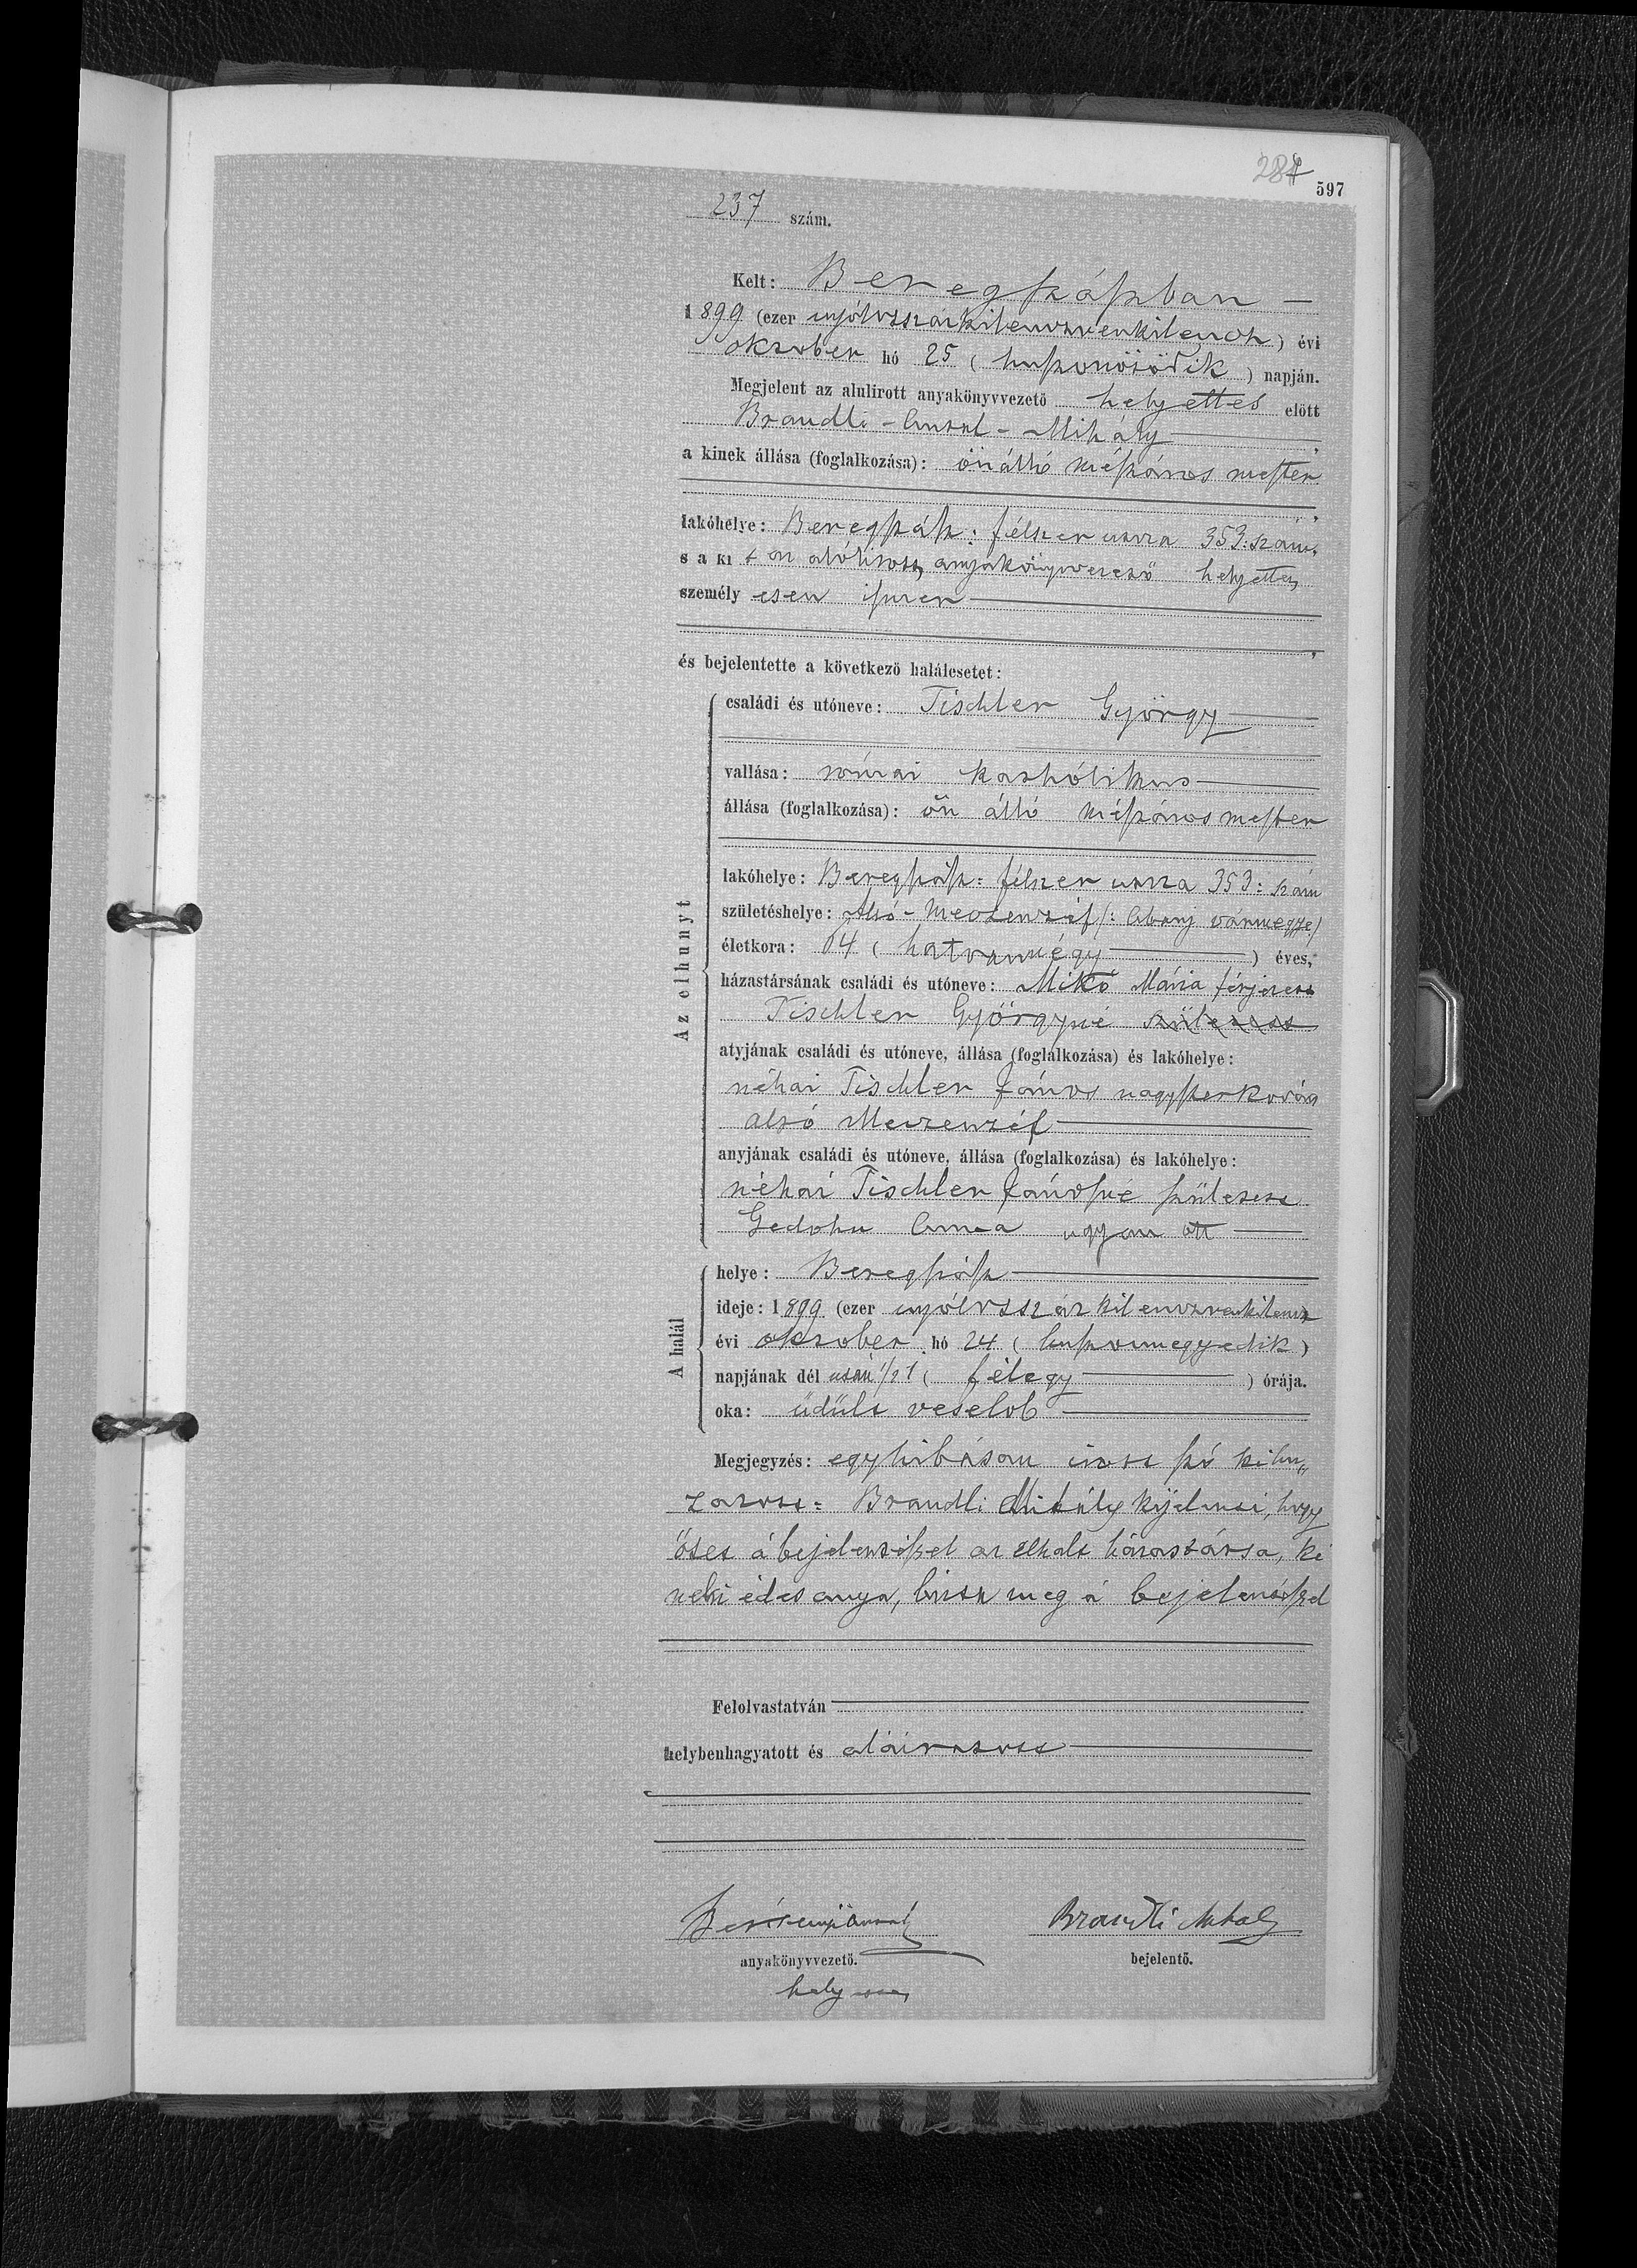 284
597
237 szám.
Kelt: Beregszászban —
1899 (ezer nyólcszázkilenczvenkilencz) évi
október hó 25 (huszonötödik) napján.
Megjelent az alulirott anyakönyvvezető helyettes előtt
Brandli-Antal-Mihály
a kinek állása (foglalkozása): önálló mészáros mester
lakóhelye: Beregszász: félszer utcza 353: szám,
s a ki t az alólírott anyakönyvvezető helyettes
személy esen ismer
és bejelentette a következő halálesetet:
Az elhunyt
családi és utóneve: Tischler György
vallása: római kathólikus
állása (foglalkozása): ön álló mészáros mester
lakóhelye: Beregszász: félszer utcza 353: szám
születéshelye: Alsó-Meczenzéf (: Abauj vármegye)
életkora: 64 (hatvannégy) éves,
házastársának családi és utóneve: Mikó Mária férjezett
Tischler Györgyné született
atyjának családi és utóneve, állása (foglalkozása) és lakóhelye:
néhai Tischler János nagyszerkovács
alsó Meczenzéf
anyjának családi és utóneve, állása (foglalkozása) és lakóhelye:
néhai Tischler Jánosné született
Anna ugyan ott
A halál
helye: Beregszász
ideje: 1899 (ezer nyólcszáz kilenczvenkilencz
évi október hó 24 (huszonnegyedik)
napjának dél után 1/2 1 (félegy) órája.
oka: üdült veselob
Megjegyzés: egy hibásan irott szó kihu„
zatott: Brandli Mihály kijelenti, hogy
őtet á bejelentéssel az elhalt házastársa, ki
neki édes anya, bizta meg á bejelentéssel
Felolvastatván
helybenhagyatott és aláiratott
Brandli Mihaly
anyakönyvvezető.
bejelentő.
helyettes